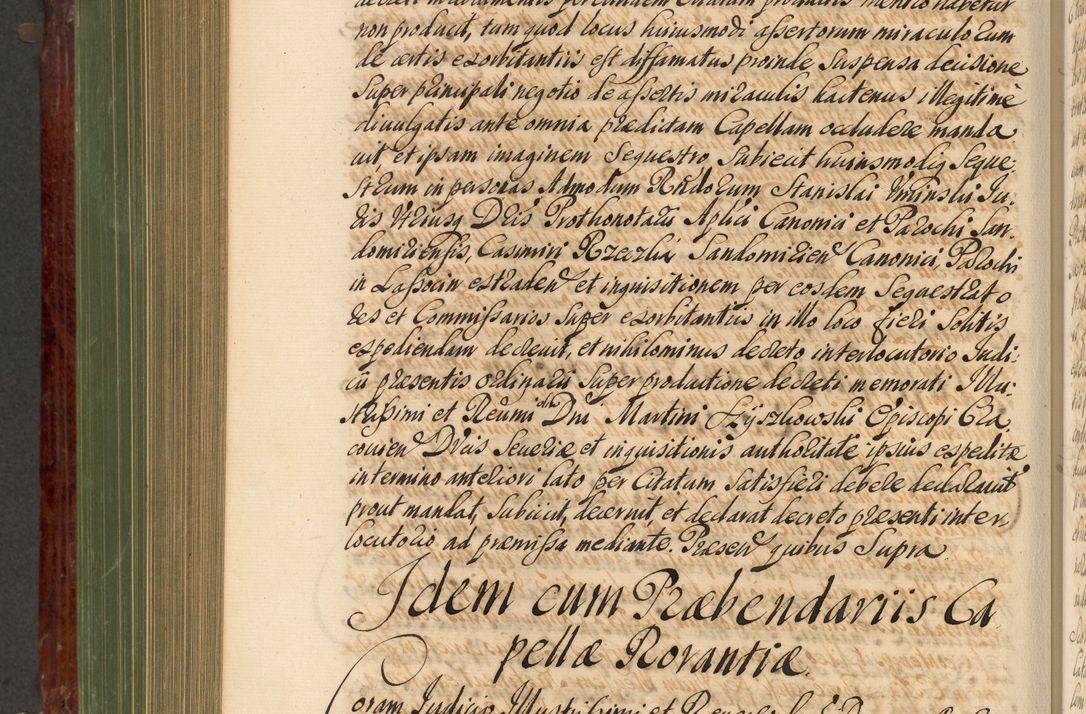 non producit, tum quod locus huiusmodi assertorum miraculorum
de certis exorbitantiis est diffamatus proinde suspensa decisione
super principali negotio de assertis miraculis hactenus illegitimè
divulgatis ante omnia prædictam Capellam occludere manda
vit et ipsam imaginem sequestro subiecit huiusmodiq Seque
strum in personas Admodum Rndorum Stanislai Ju
ris Vtriusq Dris Prothonotarii Aplici Canonici et Parochi San
domiriensis, Casimiri Rzeczki Sandomirien Canonici, Parochi
in Lassocin extraden et inquisitionem per eosdem Sequestrato
res et Commissarios super exorbitantiis in illo loco fieri solitis
expediendam decrevit, et nihilominus decreto interlocutorio Judi
cii præsentis ordinarii super productione decreti memorati Illu
strissimi et Reumi olim Dni Martini Szyszkowski Episcopi Cra
covien Ducis Severiæ et inquisitionis authoritate ipsius expeditæ
in termino anteriori lato per Citatum satisfieri debere declaravit
prout mandat, subiicit, decernit, et declarat decreto præsenti inter
locutorio ad præmissa mediante. Præsen quibus supra
Idem cum Præbendariis Ca
pellæ Rorantiæ
Coram Judicio Illustrissimi et